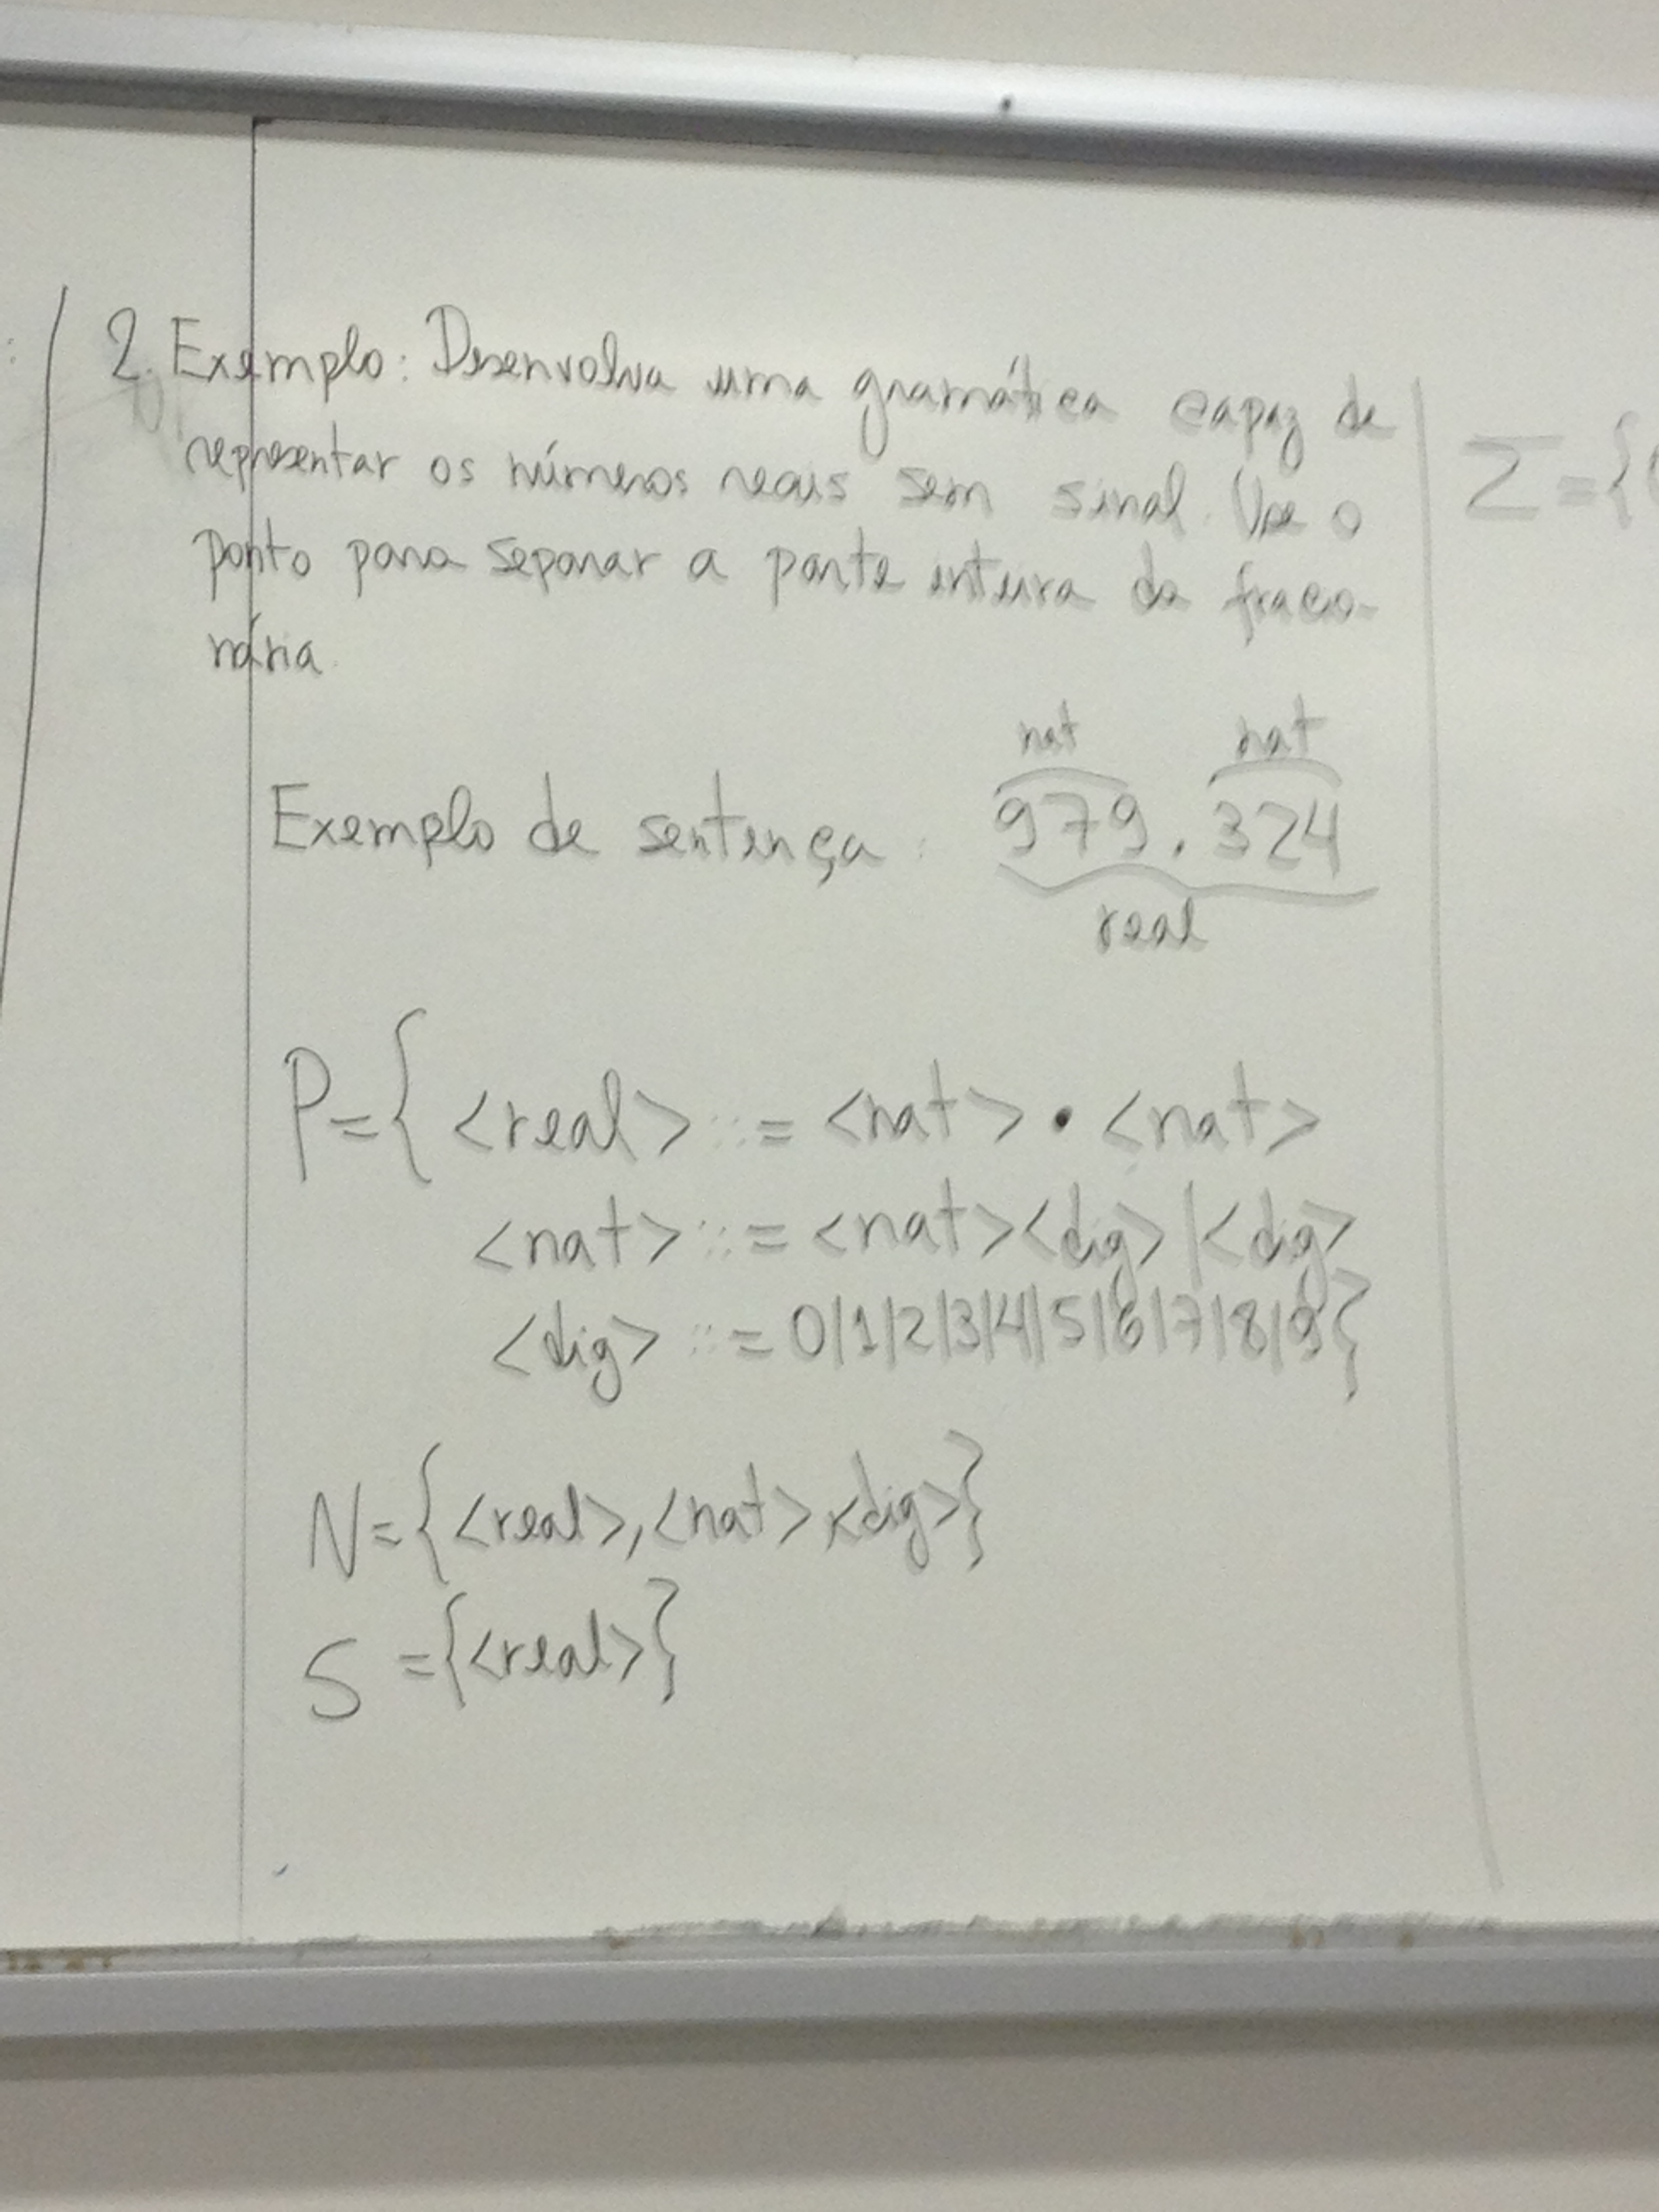 2. Exemplo: Desenvolva uma gramática capaz de
representar os números reais sem sinal. Use o
ponto para separar a parte inteira da fracio-
nária.
nat nat
Exemplo de sentença: 979.324
real
P={<real> ::= <nat> • <nat>
<nat> ::= <nat><dig>|<dig>
<dig> ::= 0|1|2|3|4|5|6|7|8|9}
N={<real>,<nat>,<dig>}
S={<real>}
Σ={